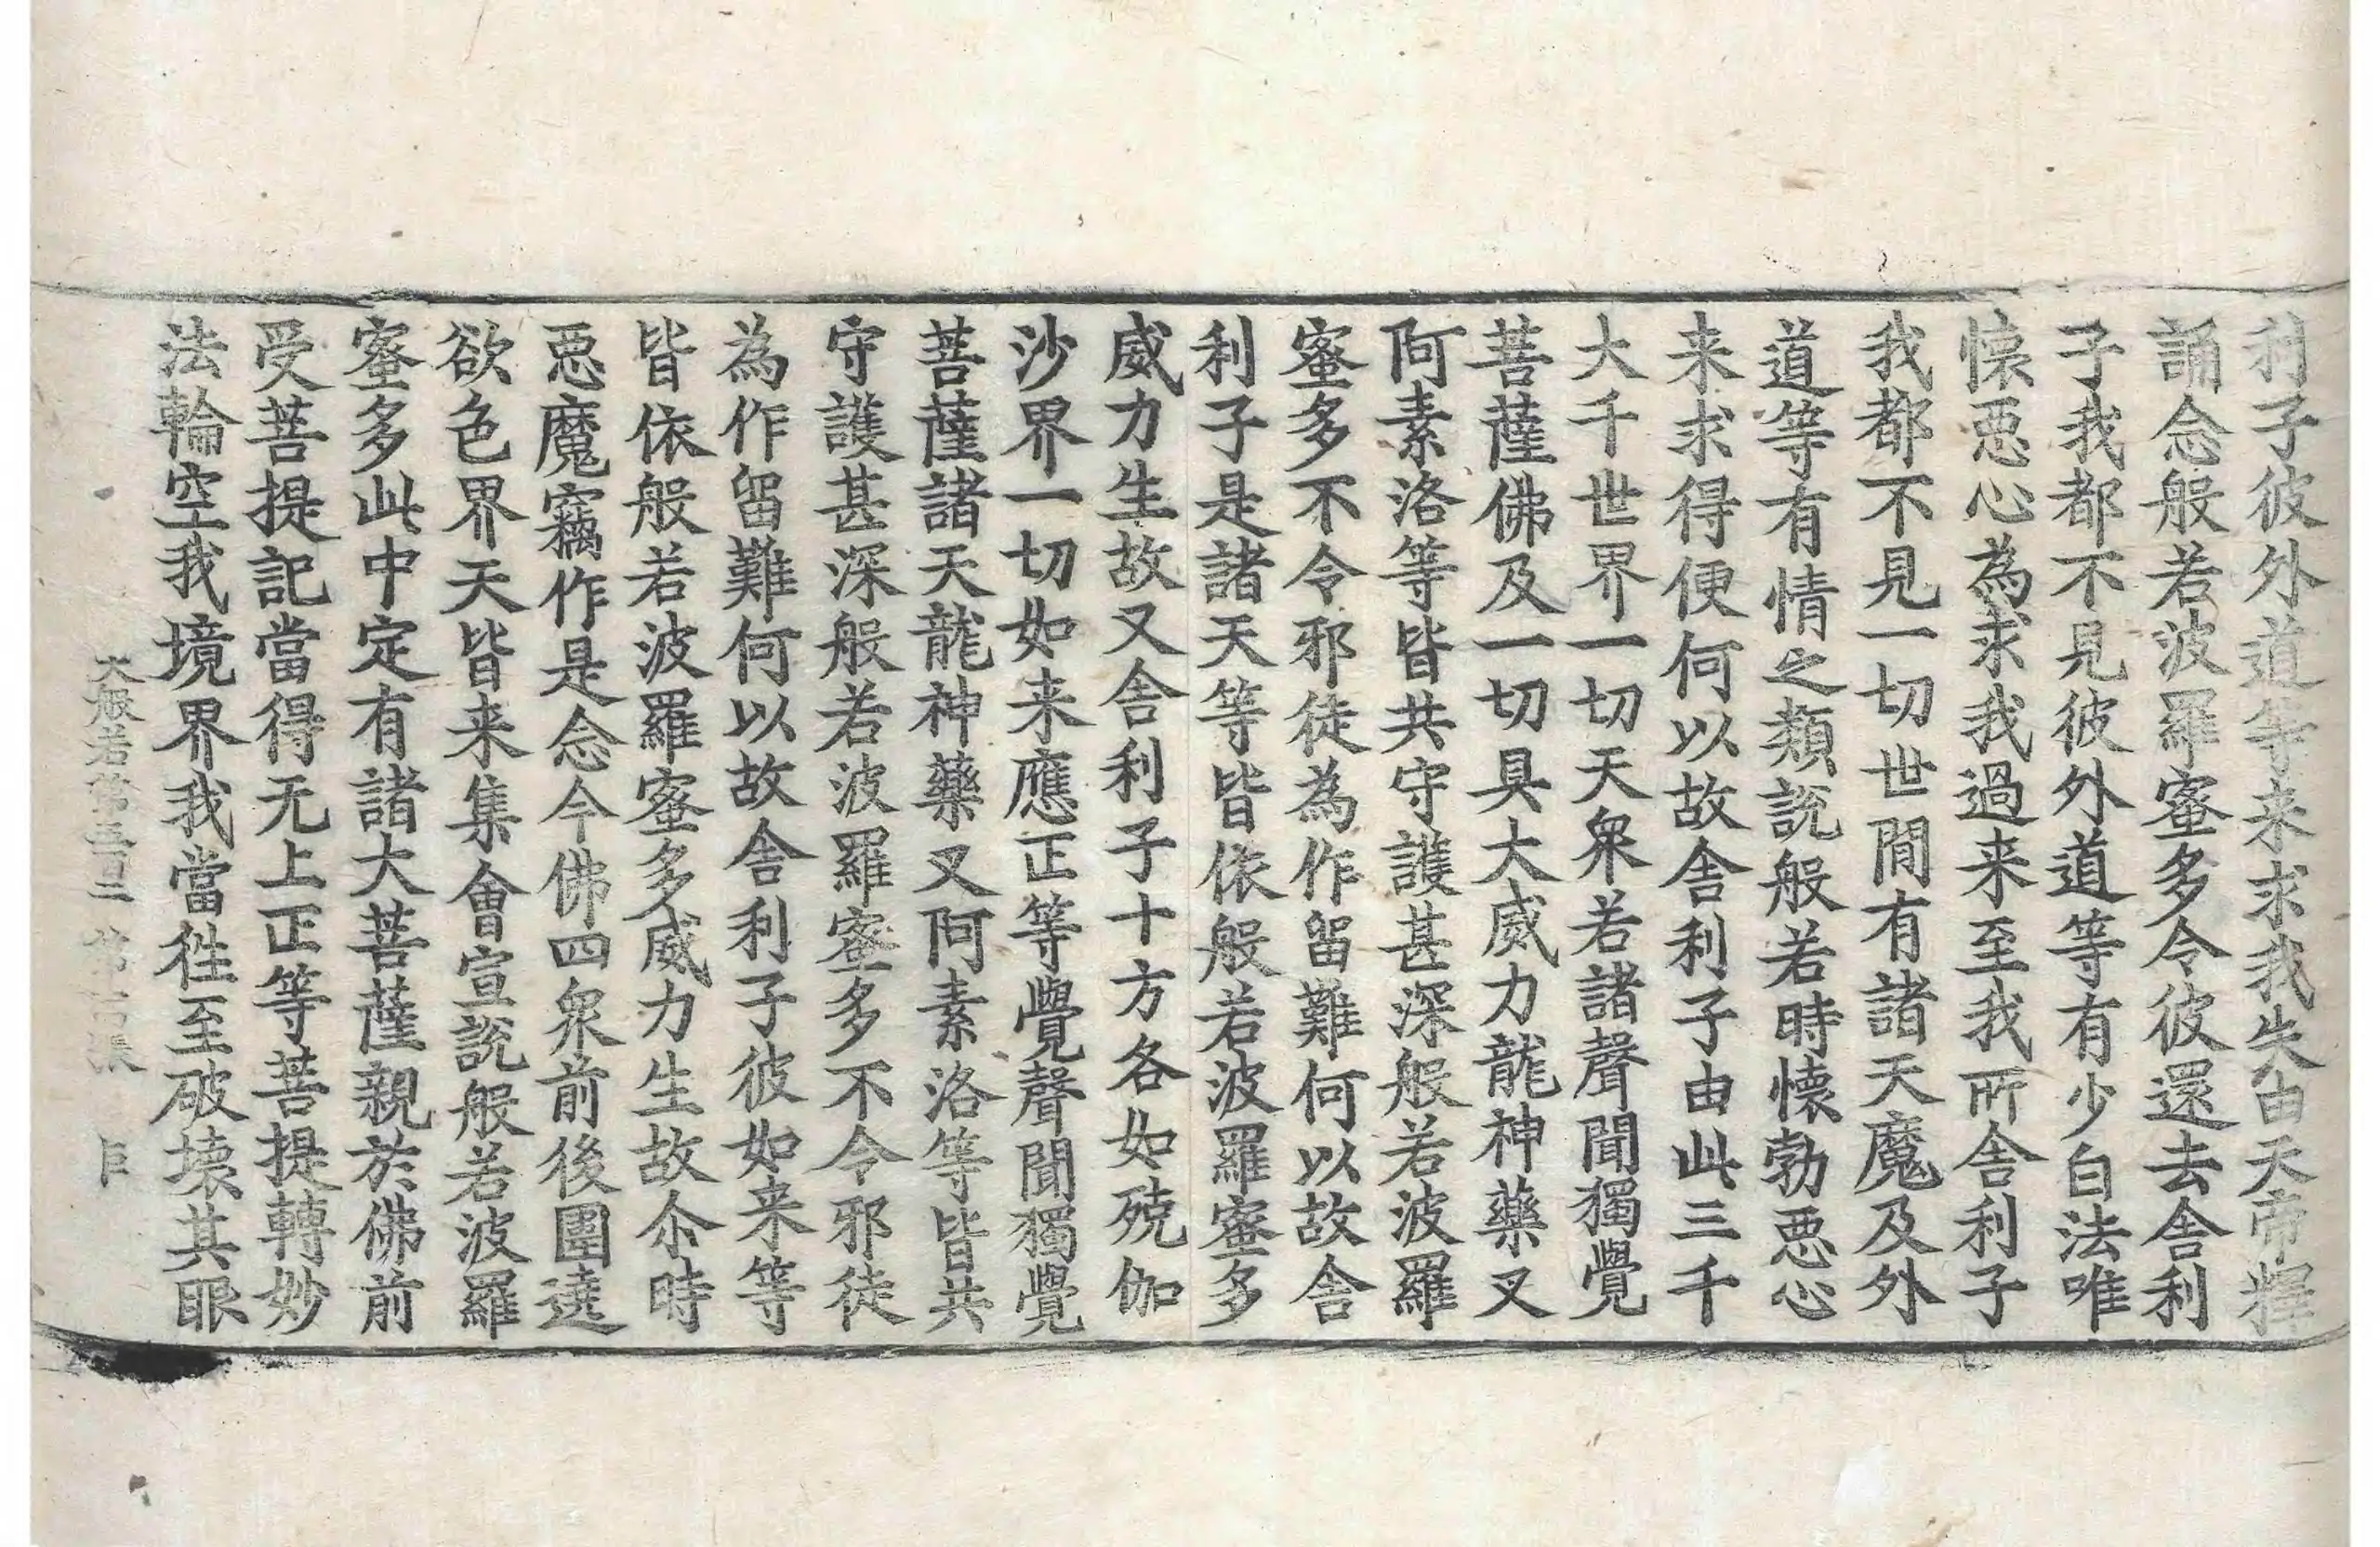 利子彼外道等来求我失由天帝釋
誦念般若波羅蜜多令彼還去舎利
子我都不見彼外道等有少白法唯
懐惡心為求我過来至我所舎利子
我都不見一切世間有諸天魔及外
道等有情之類説般若時懐勃惡心
来求得便何以故舎利子由此三千
大千世界一切天衆若諸聲聞獨覺
菩薩佛及一切具大威力龍神藥叉
阿素洛等皆共守護甚深般若波羅
蜜多不令邪徒為作留難何以故舎
利子是諸天等皆依般若波羅蜜多
威力生故又舎利子十方各如殑伽
沙界一切如来應正等覺聲聞獨覺
菩薩諸天龍神藥叉阿素洛等皆共
守護甚深般若波羅蜜多不令邪徒
為作留難何以故舎利子彼如来等
皆依般若波羅蜜多威力生故尒時
惡魔竊作是念今佛四衆前後圍遶
欲色界天皆来集會宣説般若波羅
蜜多此中定有諸大菩薩親於佛前
受菩提記當得无上正等菩提轉妙
法輪空我境界我當往至破壊其眼
大般若第五百二 第 張